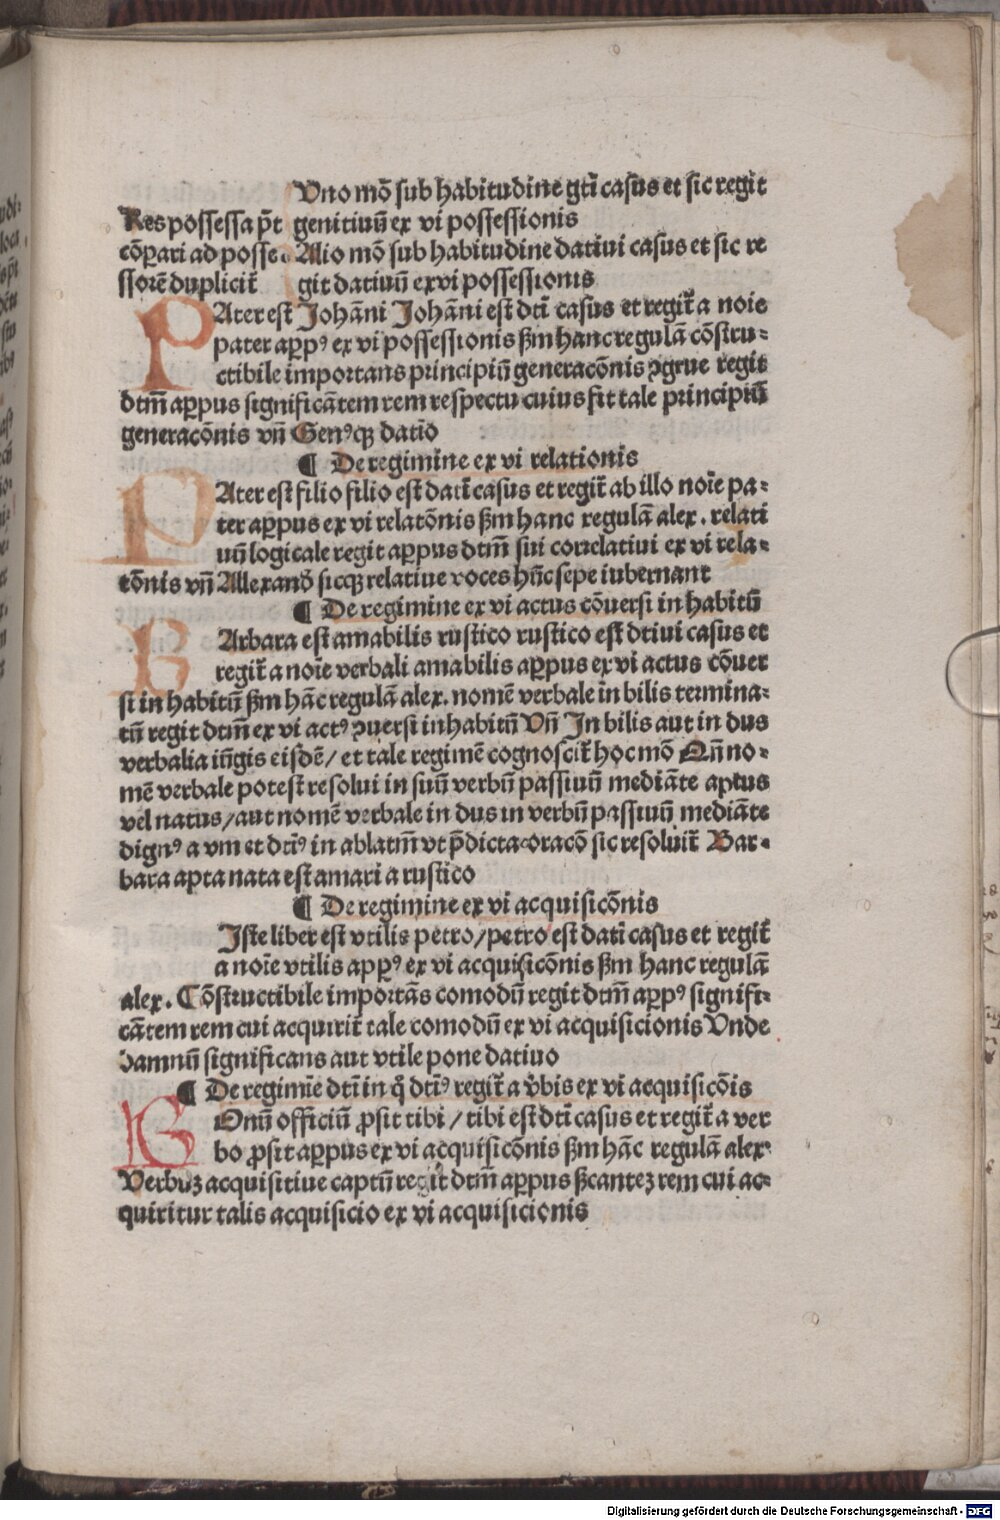 Uno mō sub habitudine gtī casus et sic regit
Res possessa pt̄ genitiuū ex vi possessionis
cōparari ad posse⸗ Alio mō sub habitudine datiui casus et sic re
ssorē duplicit̄ git datiuū ex vi possessionis
PAter est Johāni Johāni est dtī casus et regit̄ a noīe
pater app̄ꝰ ex vi possessionis ẞm hanc regulā cōstru⸗
ctibile importans principiū generacōnis ꝯgrue regit
dtm̄ app̄us significātem rem respectu cuius fit tale principiū
generacōnis vn̄ Genꝰqꝫ datīo
¶ De regimine ex vi relationis
PAter est filio filio est datī casus et regit̄ ab illo noīe pa⸗
ter app̄us ex vi relatōnis ẞm hanc regulā alex. relati
uū logicale regit app̄us dtm̄ sui correlatiui ex vi rela⸗
tōnis vn̄ Allexand̄ sicqꝫ relatiue voces hūc sepe iubernant
¶ De regimine ex vi actus cōuersi in habitū
BArbara est amabilis rustico rustico est dtiui casus et
regit̄ a noīe verbali amabilis app̄us ex vi actus cōuer
si in habitū ẞm hāc regulā alex. nomē verbale in bilis termina⸗
tū regit dtm̄ ex vi actꝰ ꝯuersi in habitū Vn̄ In bilis aut in dus
verbalia iūgis eisdē/ et tale regimē cognoscit̄ hoc mō Qn̄ no⸗
mē verbale potest resolui in suū verbū passiuū mediāte aptus
vel natus/aut nomē verbale in dus in verbū passiuū mediāte
dignꝰ a vm et dtīꝰ in ablatm̄ vt p̄dicta oracō sic resoluit̄ Bar⸗
bara apta nata est amari a rustico
¶ De regimine ex vi acquisicōnis
Iste liber est vtilis petro/petro est datī casus et regit̄
a noīe vtilis app̄ꝰ ex vi acquisicōnis ẞm hanc regulā
alex. Cōstructibile importās comodū regit dtm̄ app̄ꝰ signifi⸗
cātem rem cui acquirit̄ tale comodū ex vi acquisicionis Vnde
damnū significans aut vtile pone datiuo
¶ De regimīe dtī in q̄ dtīꝰ regit̄ a v̄bis ex vi acquisicōis
BOnū officiū ꝓsit tibi / tibi est dtī casus et regit̄ a ver
bo ꝓsit app̄us ex vi acquisicōnis ẞm hāc regulā alex⸗
Verbuꝫ acquisitiue captū regit dtm̄ app̄us ẞcanteꝫ rem cui ac⸗
quiritur talis acquisicio ex vi acquisicionis
Digitalisierung gefördert durch die Deutsche Forschungsgemeinschaft - DFG